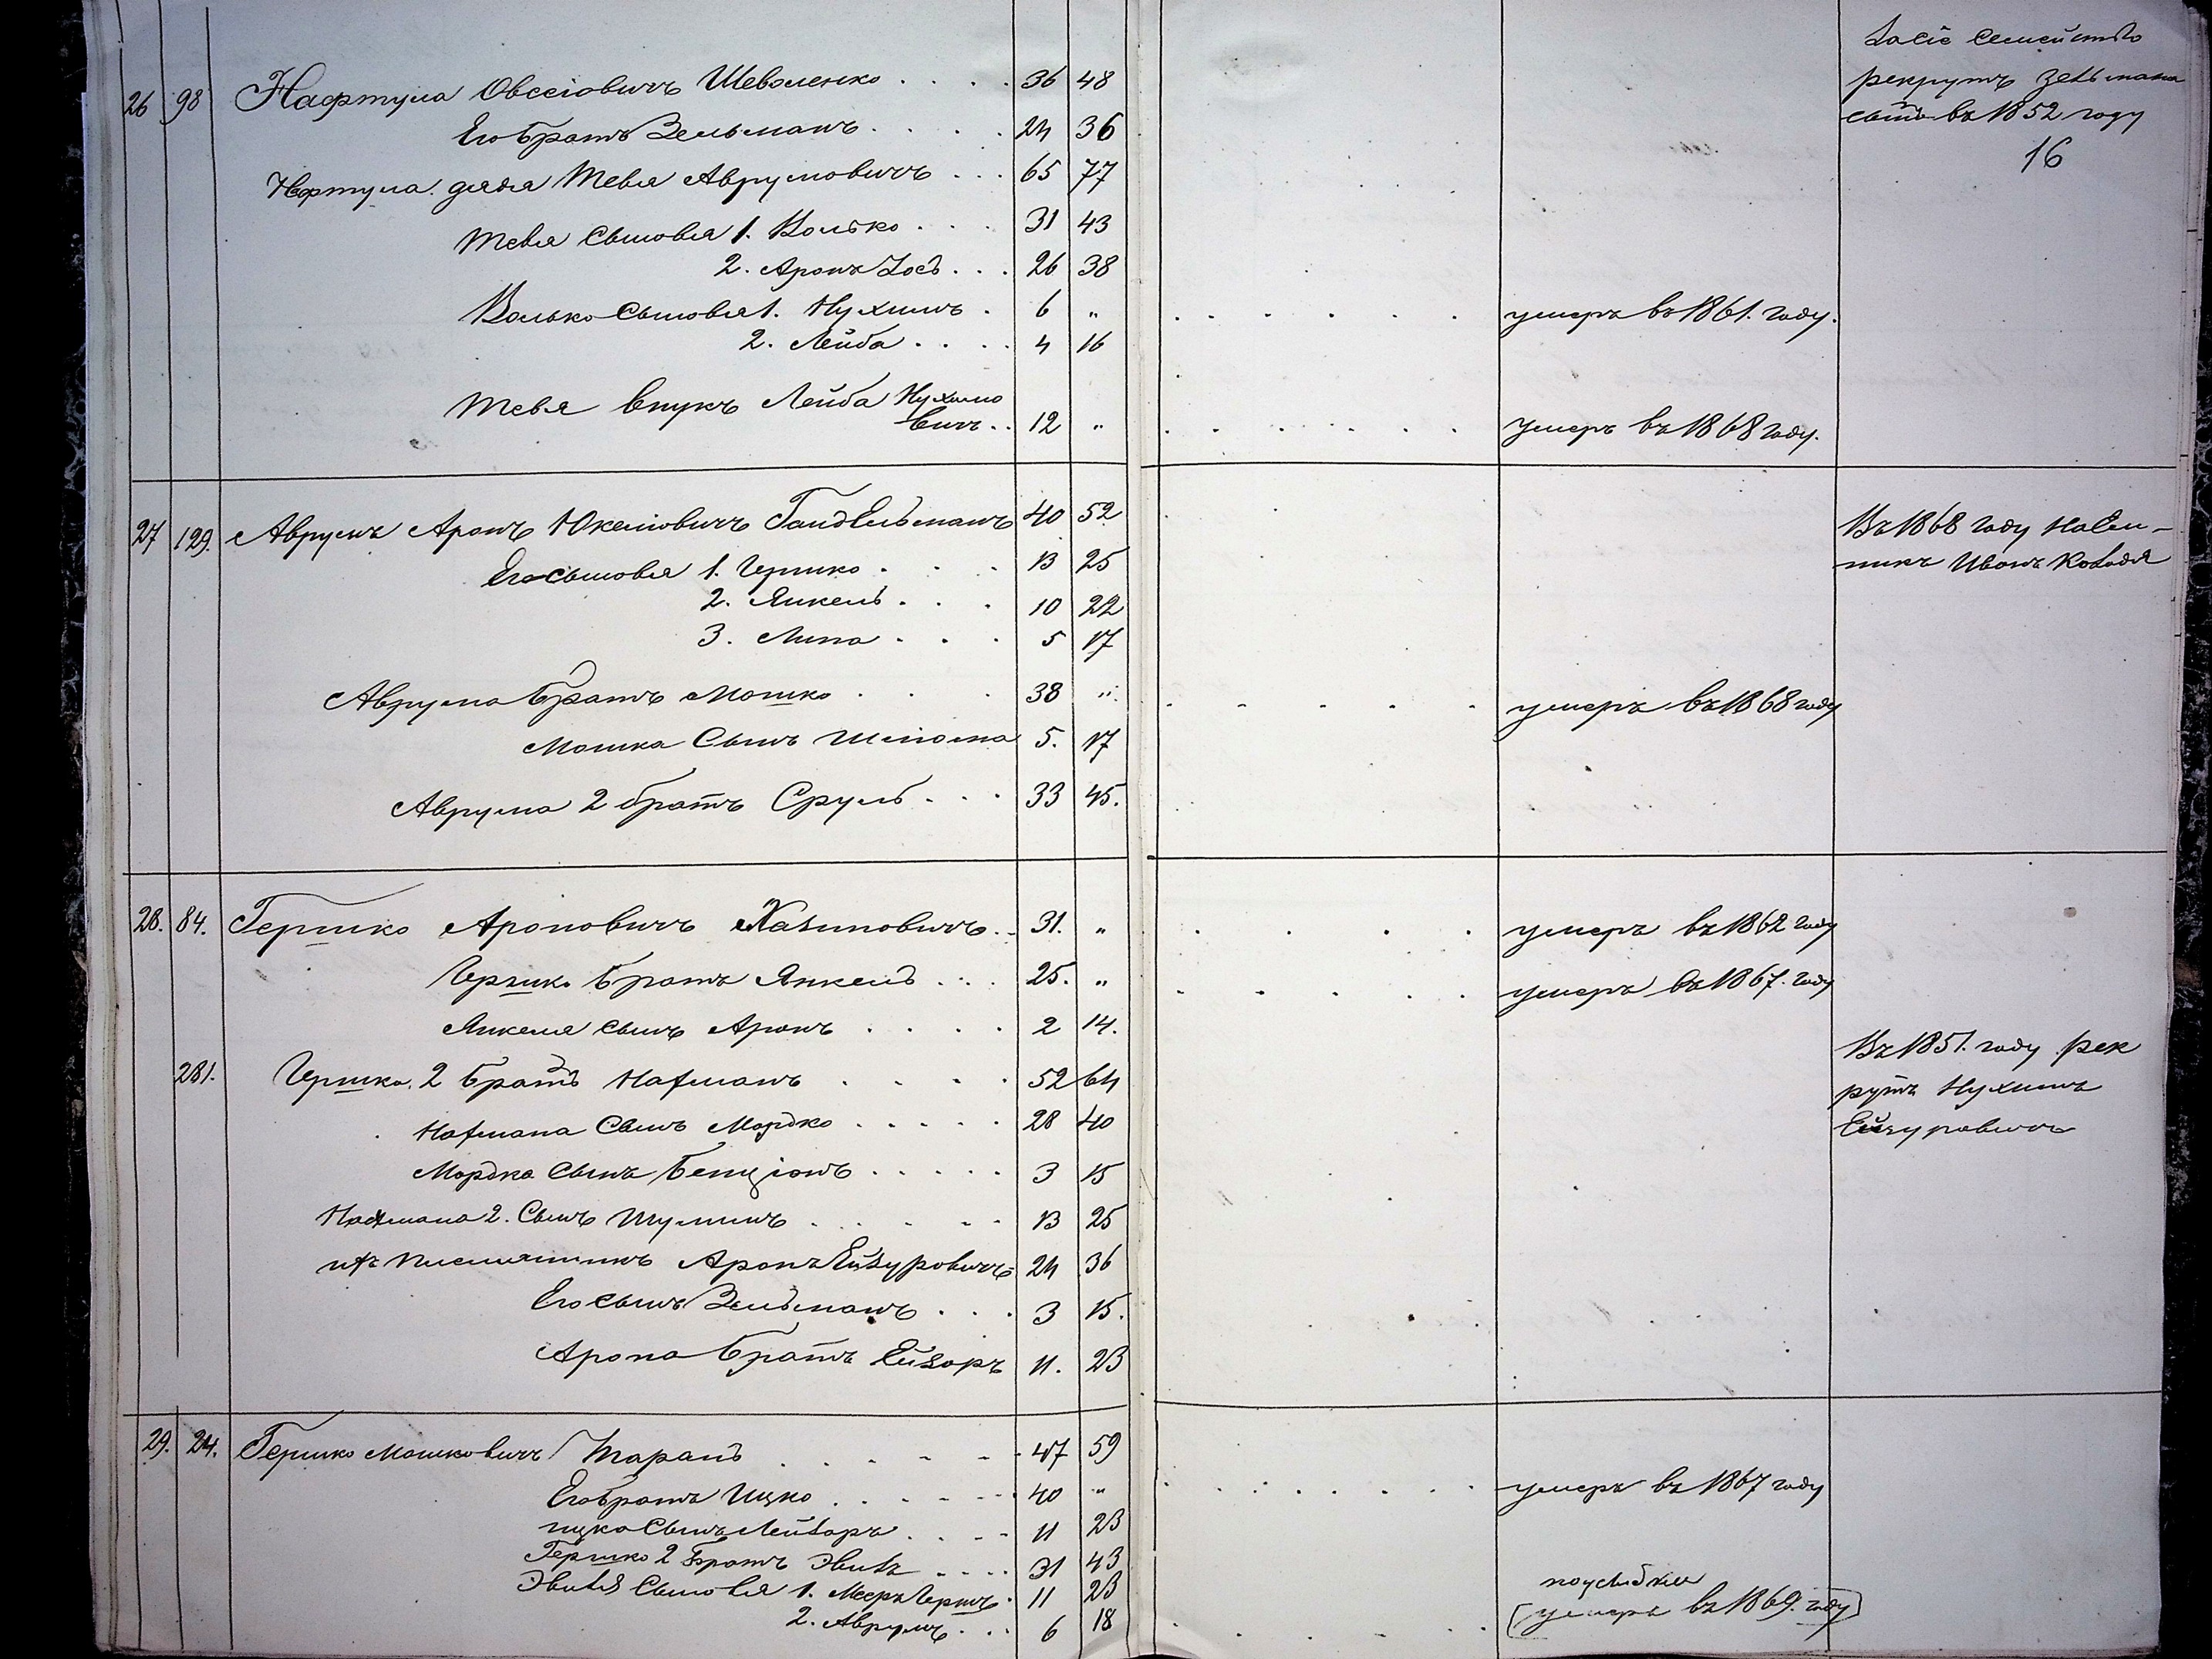 сіе семейство
26 98 Нафтула Овсіовичъ Шеволенко . . . . 36 48 рекрутъ Зельмана
Его братъ Зельманъ . . . . 24 36 въ 1852 году
16
Нафтула дядя Тевя Аврумовичъ . . . 65 77
Тевя сыновья 1. Волько . . . 31 43
2. Аронъ Іось . . . 26 38
Волько сыновья 1. Нухимъ . 6 " умеръ въ 1861. году.
2. Лейба . . . . 4 16
Тевя внукъ Лейба Нухимо
вичъ . . 12 " умеръ въ 1868 году.
27 129. Аврумъ Аронъ Юкеліовичъ Гандельманъ 40 52 Въ 1868 году наем-
Его сыновья 1. Гершко . . . 13 25 никъ Иванъ
2. Янкель . . . 10 22
3. Липа . . . 5 17
Аврума братъ Мошко . . . 38 " умеръ въ 1868 году
Мошка сынъ Шліома 5. 17
Аврума 2 братъ Сруль . . . 33 45.
28. 84. Гершко Ароновичъ Хазиновичъ . . 31. " умеръ въ 1862 году
Гершко братъ Янкель . . . 25. " умеръ въ 1867. году
Янкеля сынъ Аронъ . . . . 2 14.
Въ 1851. году рек
281. Гершко 2 братъ Нафманъ . . . . 52 64 рутъ Нухимъ
Нафмана сынъ Мордко . . . . . 28 40 Ейзуровичъ
Мордка сынъ Бенціонъ . . . . . 3 15
Нафмана 2. сынъ Шулимъ . . . . . 13 25
ихъ племянникъ Аронъ Ейзуровичъ 24 36
Его сынъ Зельманъ . . . 3 15.
Арона братъ Ейзоръ 11. 23
29. 24. Гершко Мошковичъ Таранъ . . . . . 47 59
Его братъ Ицко . . . . . . 40 " умеръ въ 1867 году
Ицка сынъ Лейзоръ . . . . 11 23
Гершко 2 братъ . . . . 31 43
сыновья 1. Мееръ Гершъ . 11 23
2. Аврумъ . . . 6 18 (умеръ въ 1869. году)